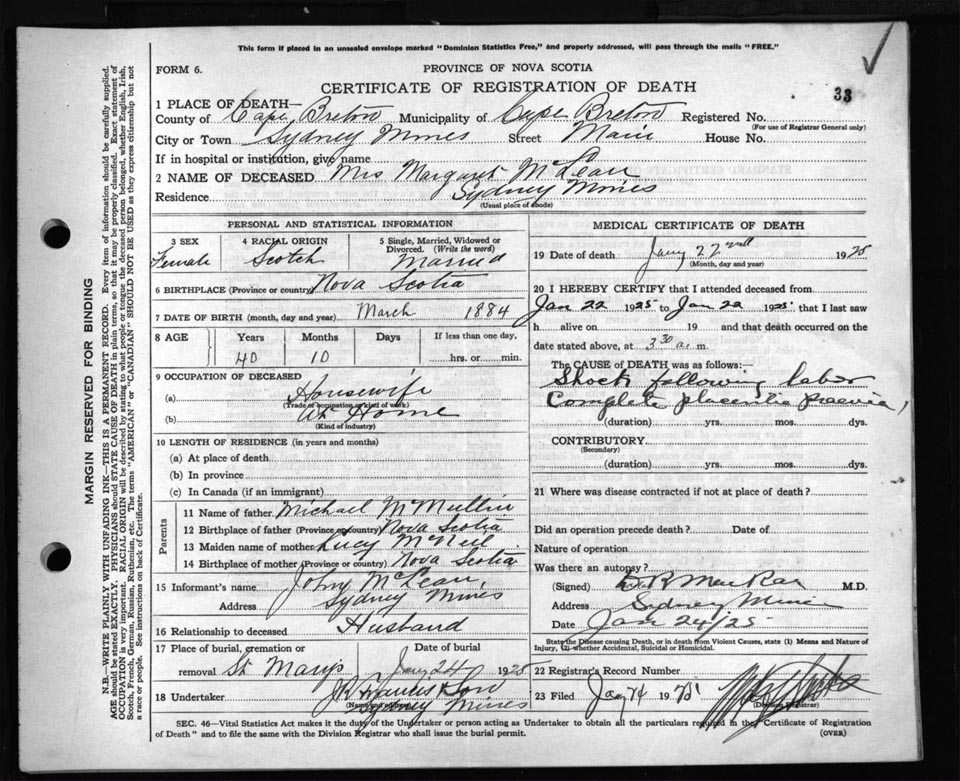 This form if placed in an unsealed envelope marked "Dominion Statistics Free," and properly addressed, will pass through the mails "FREE."
FORM 6.
PROVINCE OF NOVA SCOTIA
CERTIFICATE OF REGISTRATION OF DEATH
33
1 PLACE OF DEATH—
County of Cape Breton Municipality of Cape Breton Registered No.
(For use of Registrar General only)
City or Town Sydney Mines Street Main House No.
If in hospital or institution, give name
2 NAME OF DECEASED Mrs Margaret McLean
Residence Sydney Mines
(Usual place of abode)
PERSONAL AND STATISTICAL INFORMATION
3 SEX Female
4 RACIAL ORIGIN Scotch
5 Single, Married, Widowed or Divorced. (Write the word) Married
6 BIRTHPLACE (Province or country) Nova Scotia
7 DATE OF BIRTH (month, day and year) March 1884
8 AGE Years Months Days If less than one day,
40 10 hrs. or min.
9 OCCUPATION OF DECEASED
(a) Housewife
(Trade or occupation or kind of work)
(b) At Home
(Kind of industry)
10 LENGTH OF RESIDENCE (in years and months)
(a) At place of death
(b) In province
(c) In Canada (if an immigrant)
Parents
11 Name of father Michael McMullin
12 Birthplace of father (Province or country) Nova Scotia
13 Maiden name of mother Lucy McNeil
14 Birthplace of mother (Province or country) Nova Scotia
15 Informant's name Johny McLean,
Address Sydney Mines
16 Relationship to deceased Husband
17 Place of burial, cremation or removal St Mary's Date of burial Jany 24 1925
18 Undertaker J R Francis & Son
(Name and address)
Sydney Mines
MEDICAL CERTIFICATE OF DEATH
19 Date of death Jany 22nd 1925
(Month, day and year)
20 I HEREBY CERTIFY that I attended deceased from
Jan 22 1925 to Jan 22 1925 that I last saw
h alive on 19 and that death occurred on
date stated above, at 3 30 a. m.
The CAUSE OF DEATH was as follows:—
Shock following labor
Complete placentia praevia,
(duration) yrs. mos. dys.
CONTRIBUTORY.
(Secondary)
(duration) yrs. mos. dys.
21 Where was disease contracted if not at place of death?
Did an operation precede death? Date of
Nature of operation
Was there an autopsy?
(Signed) MacRae M.D.
Address Sydney Mines
Date Jan 24/25
State the Disease causing Death, or in death from Violent Causes, state (1) Means and Nature of Injury, (2) whether Accidental, Suicidal or Homicidal.
22 Registrar's Record Number
23 Filed Jany 24 1925
(Division Registrar)
SEC. 46—Vital Statistics Act makes it the duty of the Undertaker or person acting as Undertaker to obtain all the particulars required in the Certificate of Registration of Death" and to file the same with the Division Registrar who shall issue the burial permit.
(OVER)
MARGIN RESERVED FOR BINDING
N.B.—WRITE PLAINLY WITH UNFADING INK—THIS IS A PERMANENT RECORD. Every item of information should be carefully supplied.
AGE should be stated EXACTLY. PHYSICIANS should STATE CAUSE OF DEATH in plain terms, so that it may be properly classified. Exact statement of
OCCUPATION is very important. RACIAL ORIGIN will be described by stating to what people or tongue the deceased person belonged, whether English, Irish,
Scotch, French, German, Russian, Ruthenian, etc. The terms "AMERICAN" or "CANADIAN" SHOULD NOT BE USED as they express citizenship but not
a race or people. See instructions on back of Certificate.